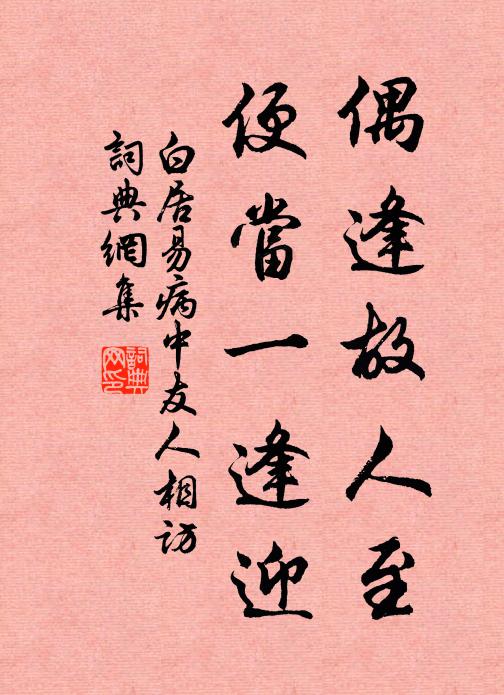 偶逢故人至
便當一逢迎
白居易病中友人相訪
詞典網集
詞典网印